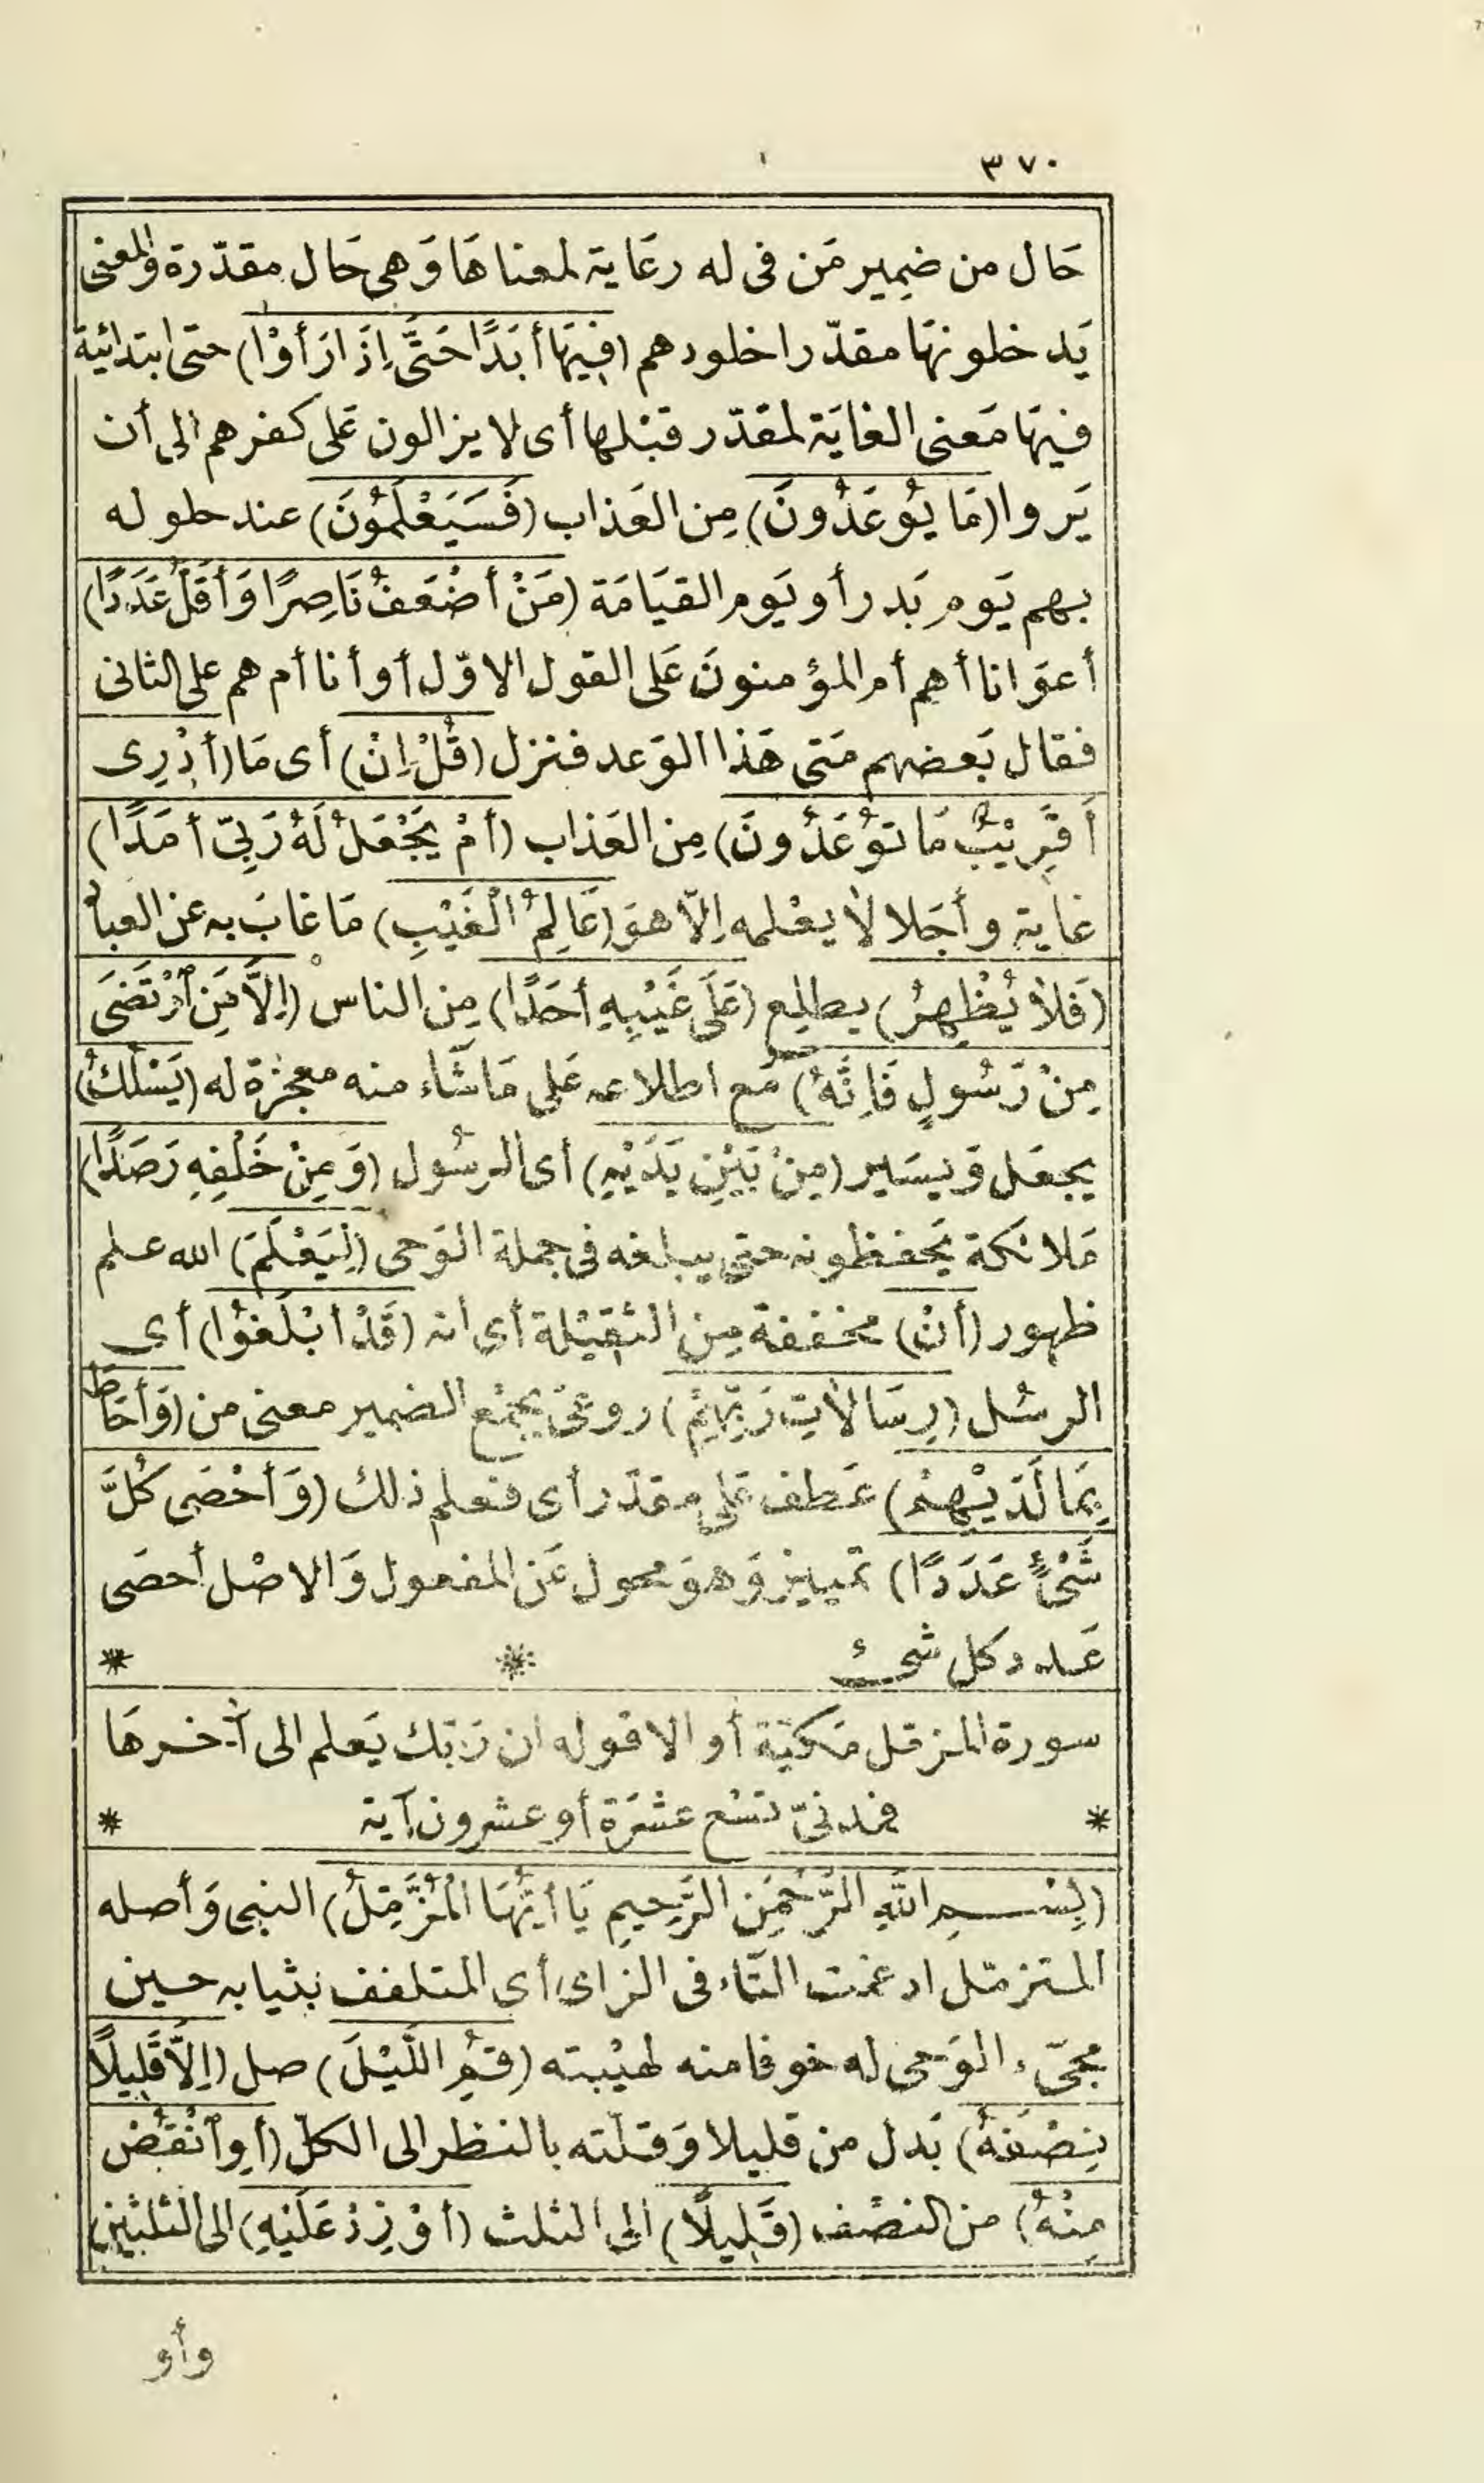 ٣٧٠
حَال من ضمِير مَن فى له رعَاية لمعناهَا وَهى حَال مقدّرة والمعنى
يَدخلونهَا مقدّرا خلودهم (فِيهَا أَبَدًا حَتَّى إِذَا رَأَوْا) حتى ابتدائية
فيهَا مَعنى الغايَة لمقدّر قبْلها أى لا يزالون عَلى كفرهم الى أن
يَروا (مَا يُوعَدُونَ) مِن العَذاب (فَسَيَعْلَمُونَ) عند حلوله
بهم يَوم بَدر أو يَوم القيَامَة (مَنْ أَضْعَفُ نَاصِرًا وَأَقَلُّ عَدَدًا)
أعوَانا أهم أم المؤمنونَ عَلى القول الاوّل أو أنا أم هم على الثانى
فقال بَعضهم مَتى هَذا الوَعد فنزل (قُلْ إِنْ) أى مَا (أَدْرِى
أَقَرِيْبٌ مَا تُوعَدُونَ) مِن العَذاب (أَمْ يَجْعَلُ لَهُ رَبِّىٓ أَمَدًا)
غاية وأجَلا لا يعْلمه إلّا هوَ (عَالِمُ الْغَيْبِ) مَا غابَ به عن العباد
(فَلاَ يُظْهِرُ) يطلِع (عَلَى غَيْبِهِ أَحَدًا) مِن الناس (إِلاَّ مَنِ ٱرْتَضَى
مِنْ رَسُولٍ فَإِنَّهُ) مَع اطلاعه عَلى مَا شَاء منه معجزة له (يَسْلُكُ)
يجعَل وَيسَير (مِنْ بَيْنِ يَدَيْهِ) أى الرسُول (وَمِنْ خَلْفِهِ رَصَدًا)
مَلائكة يَحفظونه حتى يبلغه فى جملة الوَحى (لِيَعْلَمَ) الله علم
ظهور (أَنْ) مخففة مِن الثقيْلة أى انه (قَدْ أَبْلَغُوا) أى
الرسُل (رِسَالاَتِ رَبِّهِمْ) روعىَ بجمْع الضمير معنى من (وَأَحَاطَ
بِمَا لَدَيْهِمْ) عَطف عَلى مقدّر أى فعلم ذلك (وَأَحْصَى كُلَّ
شَىْءٍ عَدَدًا) تمْييز وَهوَ محول عَن المفعول وَالاصْل أحصَى
عَدد كل شىء * *
سورة المزمّل مَكيّة أو الا قوله ان رَبّك يَعلم الى آخرهَا
* فمدنىّ تسْع عشرَة أو عشرون آية *
(بِسْمِ اللَّهِ الرَّحْمَنِ الرَّحِيمِ يَا أَيُّهَا الْمُزَّمِّلُ) النبى وَأصله
المتزمّل ادغمت التّاء فى الزاى أى المتلفف بثيابه حين
مجىّء الوَحى له خوفا منه لهيْبته (قُمِ اللَّيْلَ) صل (إِلاَّ قَلِيلاً
نِصْفَهُ) بَدل من قليلا وَقلّته بالنظر الى الكلّ (أَوِ ٱنْقُصْ
مِنْهُ) من النصْف (قَلِيلاً) الى الثلث (أَوْ زِدْ عَلَيْهِ) الى الثلثين
وأو